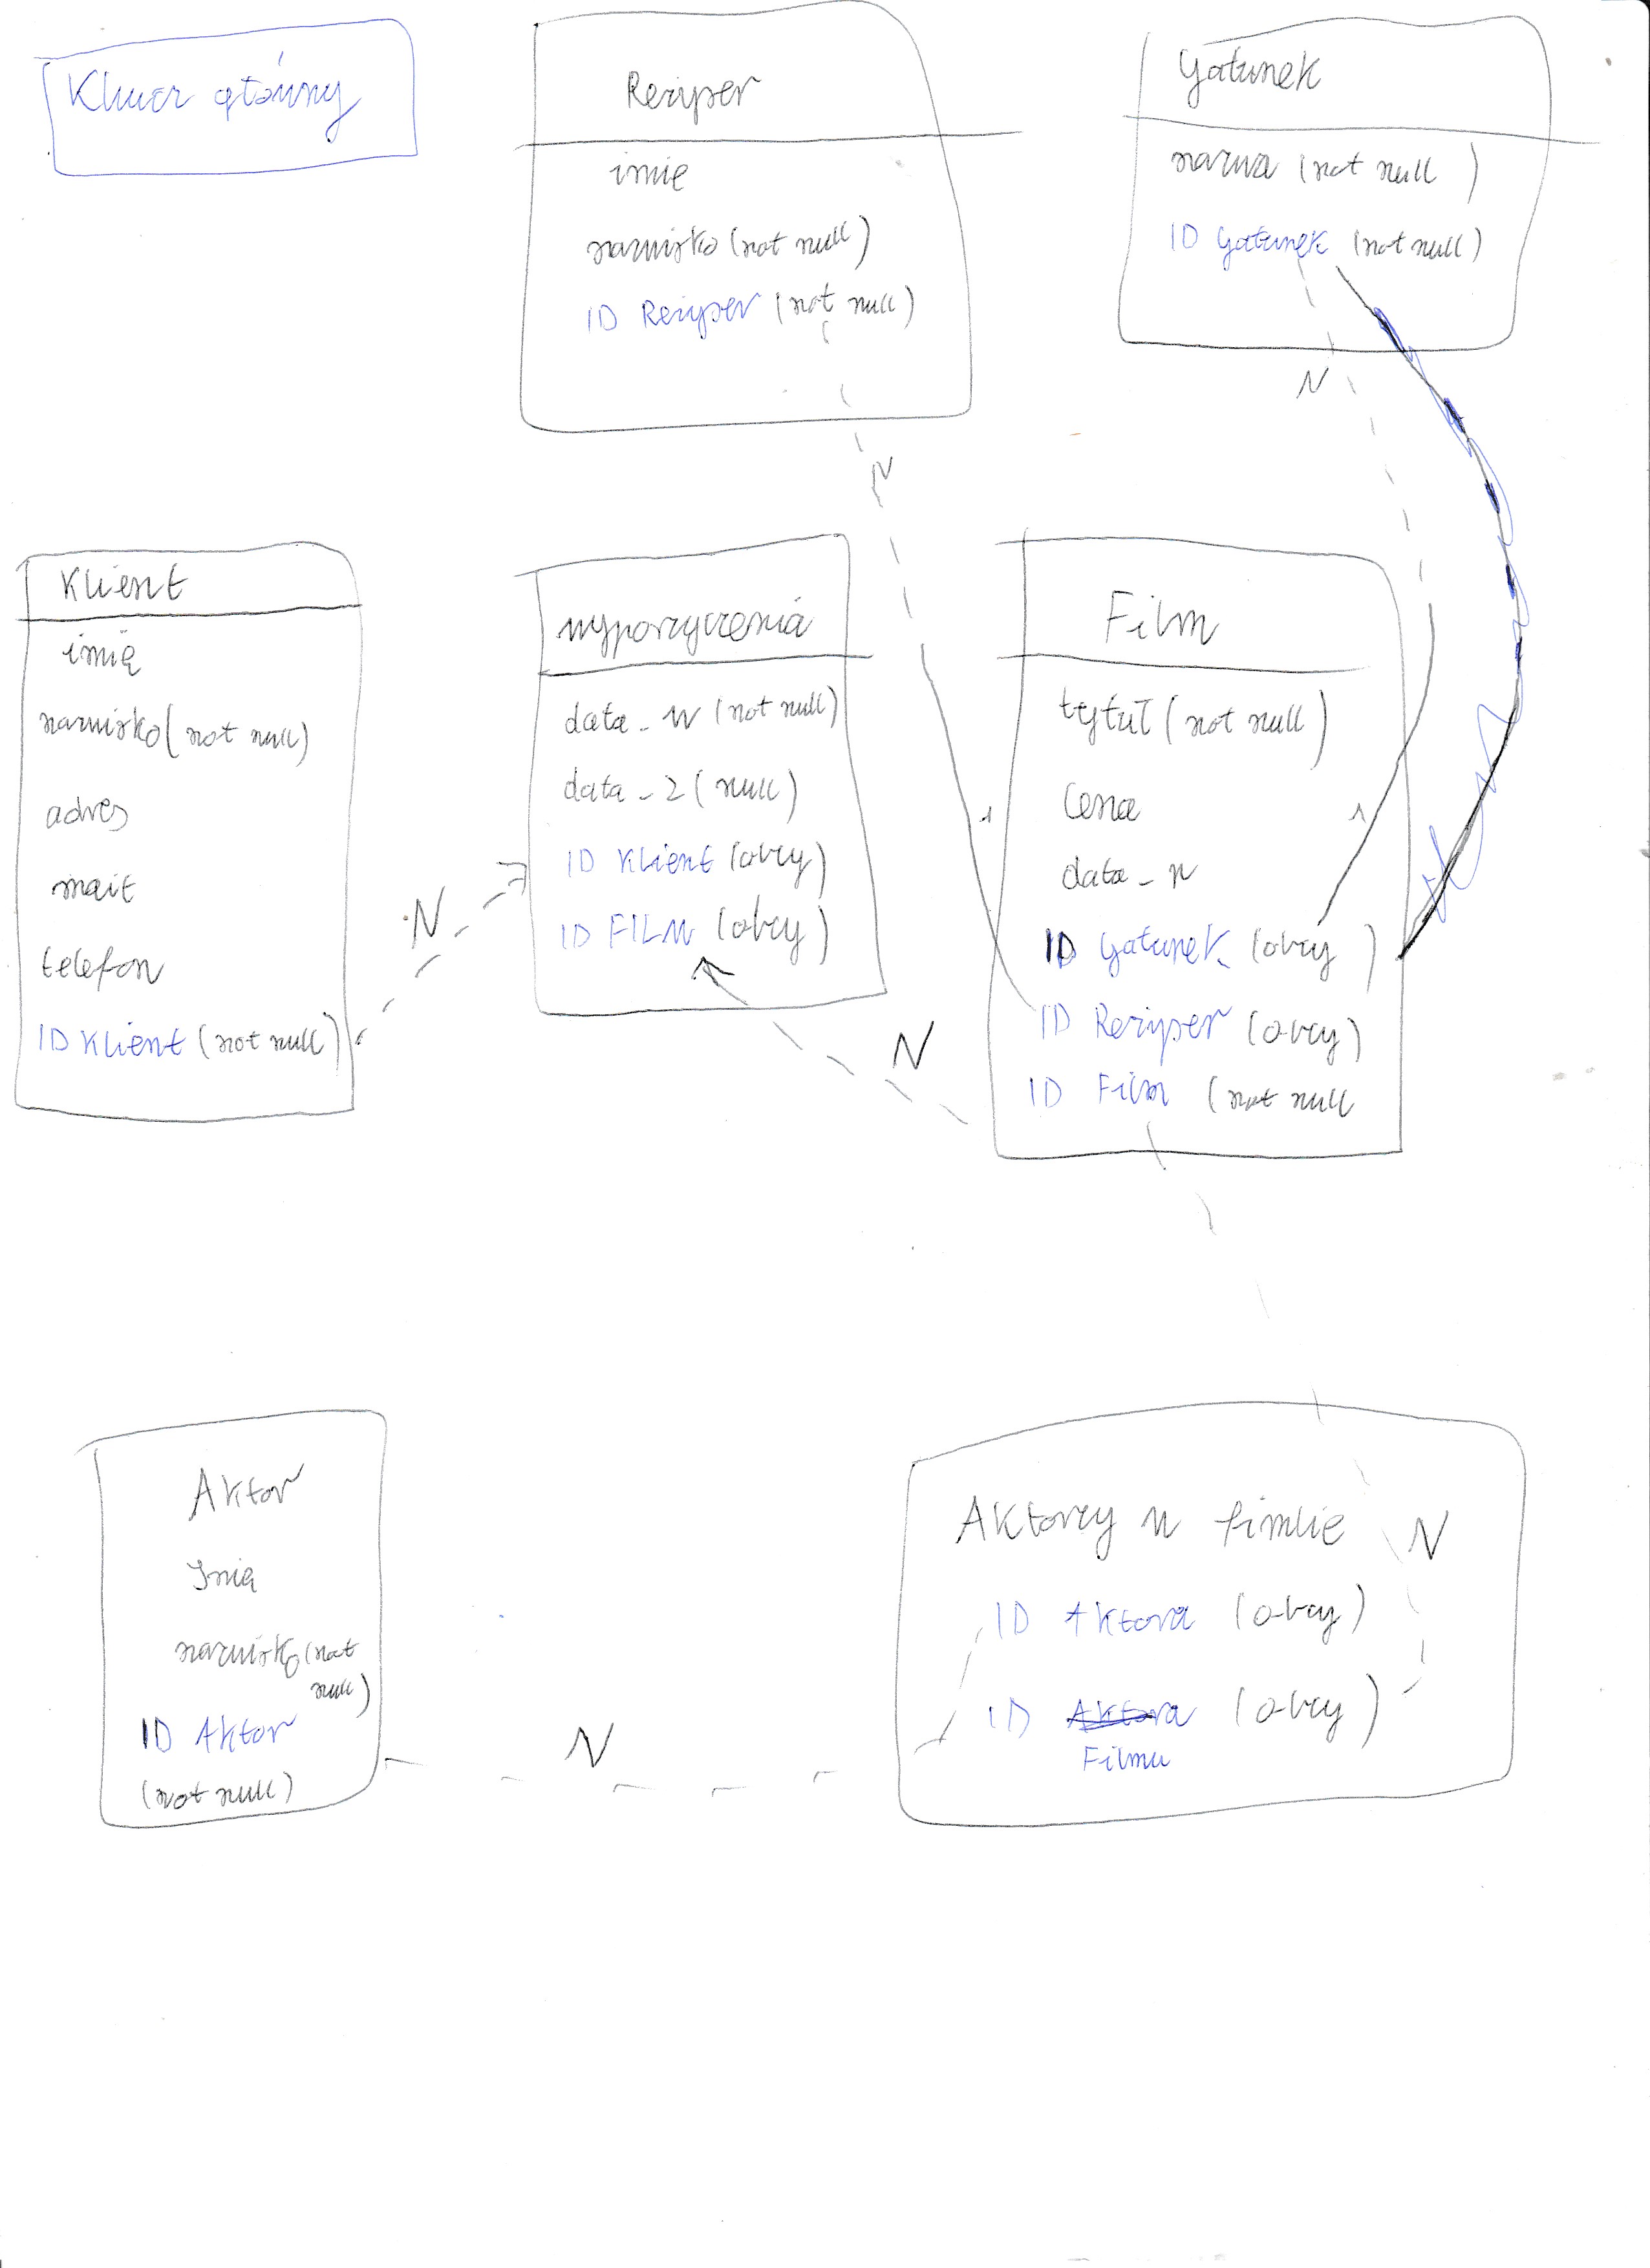 Klucz główny
Reżyser
imię
nazwisko (not null)
ID Reżyser (not null)
Gatunek
nazwa (not null)
ID Gatunek (not null)
N
N
Klient
imię
nazwisko (not null)
adres
mail
telefon
ID Klient (not null)
N
wyporzyczenia
data_w (not null)
data_z (null)
ID Klient (obcy)
ID FILM (obcy)
N
Film
tytuł (not null)
cena
data_p
ID Gatunek (obcy)
ID Reżyser (obcy)
ID Film (not null
1
1
Aktor
Imię
nazwisko (not
null)
ID Aktor
(not null)
N
Aktorzy w fimlie
N
ID Aktora (obcy)
ID Aktora (obcy)
Filmu